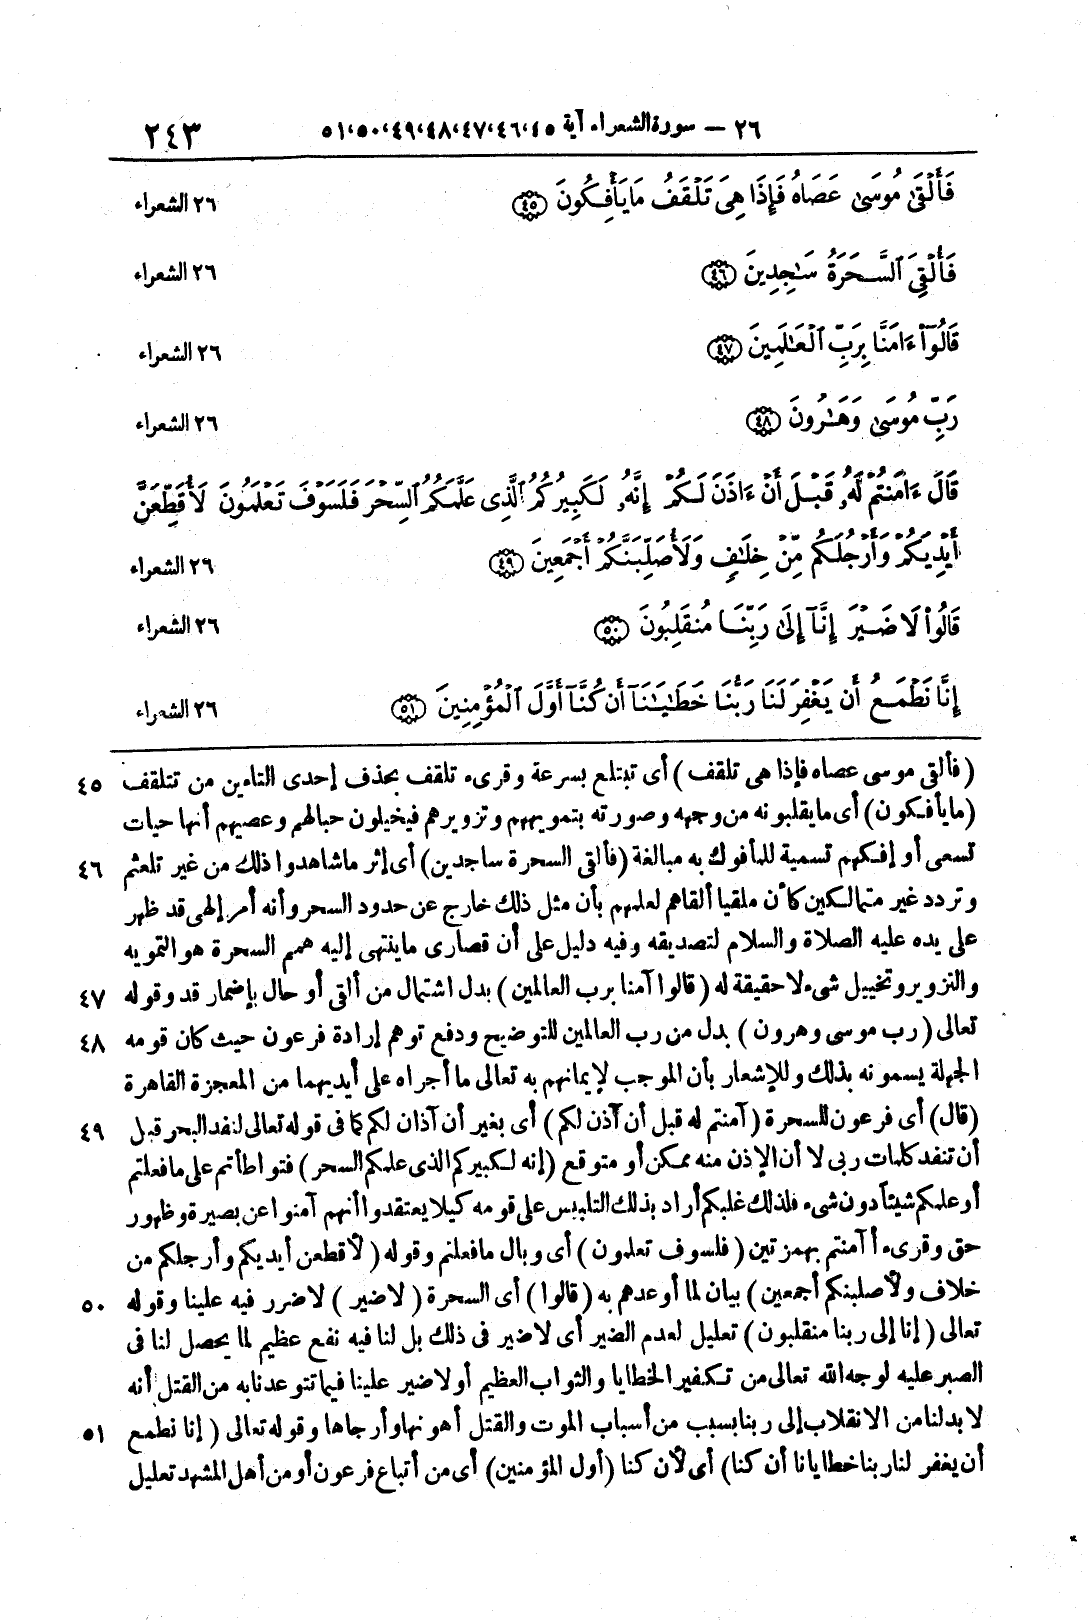 ٢٦ – سورة الشعراء آية ٤٥،٤٦،٤٧،٤٨،٤٩،٥٠،٥١ ٢٤٣
فَأَلْقَىٰ مُوسَىٰ عَصَاهُ فَإِذَا هِىَ تَلْقَفُ مَا يَأْفِكُونَ ٤٥ ٢٦ الشعراء
فَأُلْقِىَ ٱلسَّحَرَةُ سَٰجِدِينَ ٤٦ ٢٦ الشعراء
قَالُوٓا۟ ءَامَنَّا بِرَبِّ ٱلْعَٰلَمِينَ ٤٧ ٢٦ الشعراء
رَبِّ مُوسَىٰ وَهَٰرُونَ ٤٨ ٢٦ الشعراء
قَالَ ءَامَنتُمْ لَهُۥ قَبْلَ أَنْ ءَاذَنَ لَكُمْ إِنَّهُۥ لَكَبِيرُكُمُ ٱلَّذِى عَلَّمَكُمُ ٱلسِّحْرَ فَلَسَوْفَ تَعْلَمُونَ لَأُقَطِّعَنَّ
أَيْدِيَكُمْ وَأَرْجُلَكُم مِّنْ خِلَٰفٍ وَلَأُصَلِّبَنَّكُمْ أَجْمَعِينَ ٤٩ ٢٦ الشعراء
قَالُوا۟ لَا ضَيْرَ إِنَّآ إِلَىٰ رَبِّنَا مُنقَلِبُونَ ٥٠ ٢٦ الشعراء
إِنَّا نَطْمَعُ أَن يَغْفِرَ لَنَا رَبُّنَا خَطَٰيَٰنَآ أَن كُنَّآ أَوَّلَ ٱلْمُؤْمِنِينَ ٥١ ٢٦ الشعراء
(فألقى موسى عصاه فإذا هى تلقف) أى تبتلع بسرعة وقرىء تلقف بحذف إحدى التاءين من تتلقف ٤٥
(ما يأفكون) أى ما يقلبونه من وجهه وصورته بتمويههم وتزويرهم فيخيلون حبالهم وعصيهم أنها حيات
تسعى أو إفكهم تسمية للمأفوك به مبالغة (فألقى السحرة ساجدين) أى إثر ما شاهدوا ذلك من غير تلعثم ٤٦
وتردد غير متمالكين كأن ملقيا ألقاهم لعلمهم بأن مثل ذلك خارج عن حدود السحر وأنه أمر إلهى قد ظهر
على يده عليه الصلاة والسلام لتصديقه وفيه دليل على أن قصارى ما ينتهى إليه همم السحرة هو التمويه
والتزوير وتخييل شىء لا حقيقة له (قالوا آمنا برب العالمين) بدل اشتمال من ألقى أو حال بإضمار قد وقوله ٤٧
تعالى (رب موسى وهرون) بدل من رب العالمين للتوضيح ودفع توهم إرادة فرعون حيث كان قومه ٤٨
الجهلة يسمونه بذلك وللإشعار بأن الموجب لإيمانهم به تعالى ما أجراه على أيديهما من المعجزة القاهرة
(قال) أى فرعون للسحرة (آمنتم له قبل أن آذن لكم) أى بغير أن آذان لكم كما فى قوله تعالى لنفد البحر قبل ٤٩
أن تنفد كلمات ربى لا أن الإذن منه ممكن أو متوقع (إنه لكبيركم الذى علمكم السحر) فتواطأتم على ما فعلتم
أو علمكم شيئاً دون شىء فلذلك غلبكم أراد بذلك التلبيس على قومه كيلا يعتقدوا أنهم آمنوا عن بصيرة وظهور
حق وقرىء أآمنتم بهمزتين (فلسوف تعلمون) أى وبال ما فعلتم وقوله (لأقطعن أيديكم وأرجلكم من
خلاف ولأصلبنكم أجمعين) بيان لما أوعدهم به (قالوا) أى السحرة (لا ضير) لا ضرر فيه علينا وقوله ٥٠
تعالى (إنا إلى ربنا منقلبون) تعليل لعدم الضير أى لا ضير فى ذلك بل لنا فيه نفع عظيم لما يحصل لنا فى
الصبر عليه لوجه الله تعالى من تكفير الخطايا والثواب العظيم أو لا ضير علينا فيما تتوعدنا به من القتل أنه
لا بد لنا من الانقلاب إلى ربنا بسبب من أسباب الموت والقتل أهونها وأرجاها وقوله تعالى (إنا نطمع ٥١
أن يغفر لنا ربنا خطايانا أن كنا) أى لأن كنا (أول المؤمنين) أى من أتباع فرعون أو من أهل المشهد تعليل